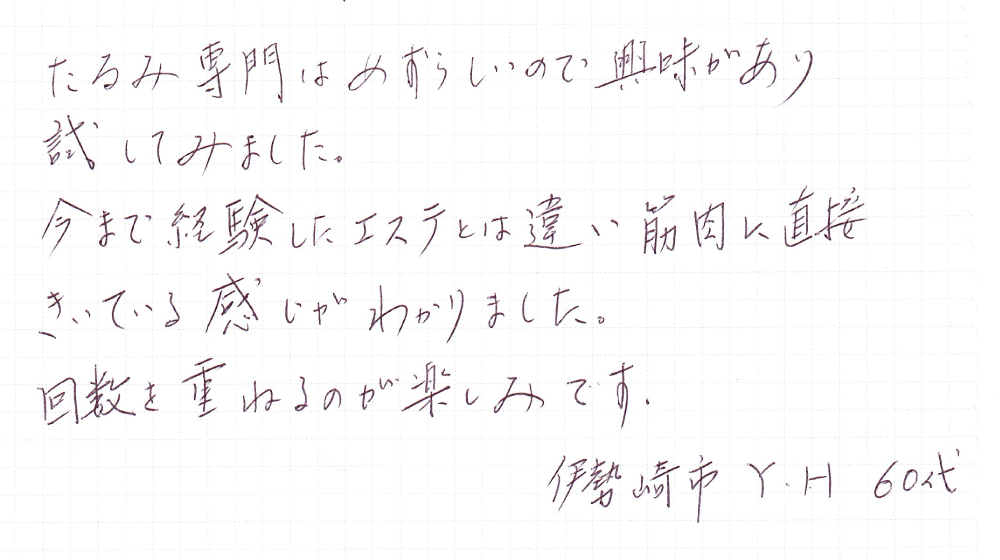 たるみ専門はめずらしいので興味があり
試してみました。
今まで経験したエステとは違い筋肉に直接
きいている感じがわかりました。
回数を重ねるのが楽しみです.
伊勢崎市 Y.H 60代